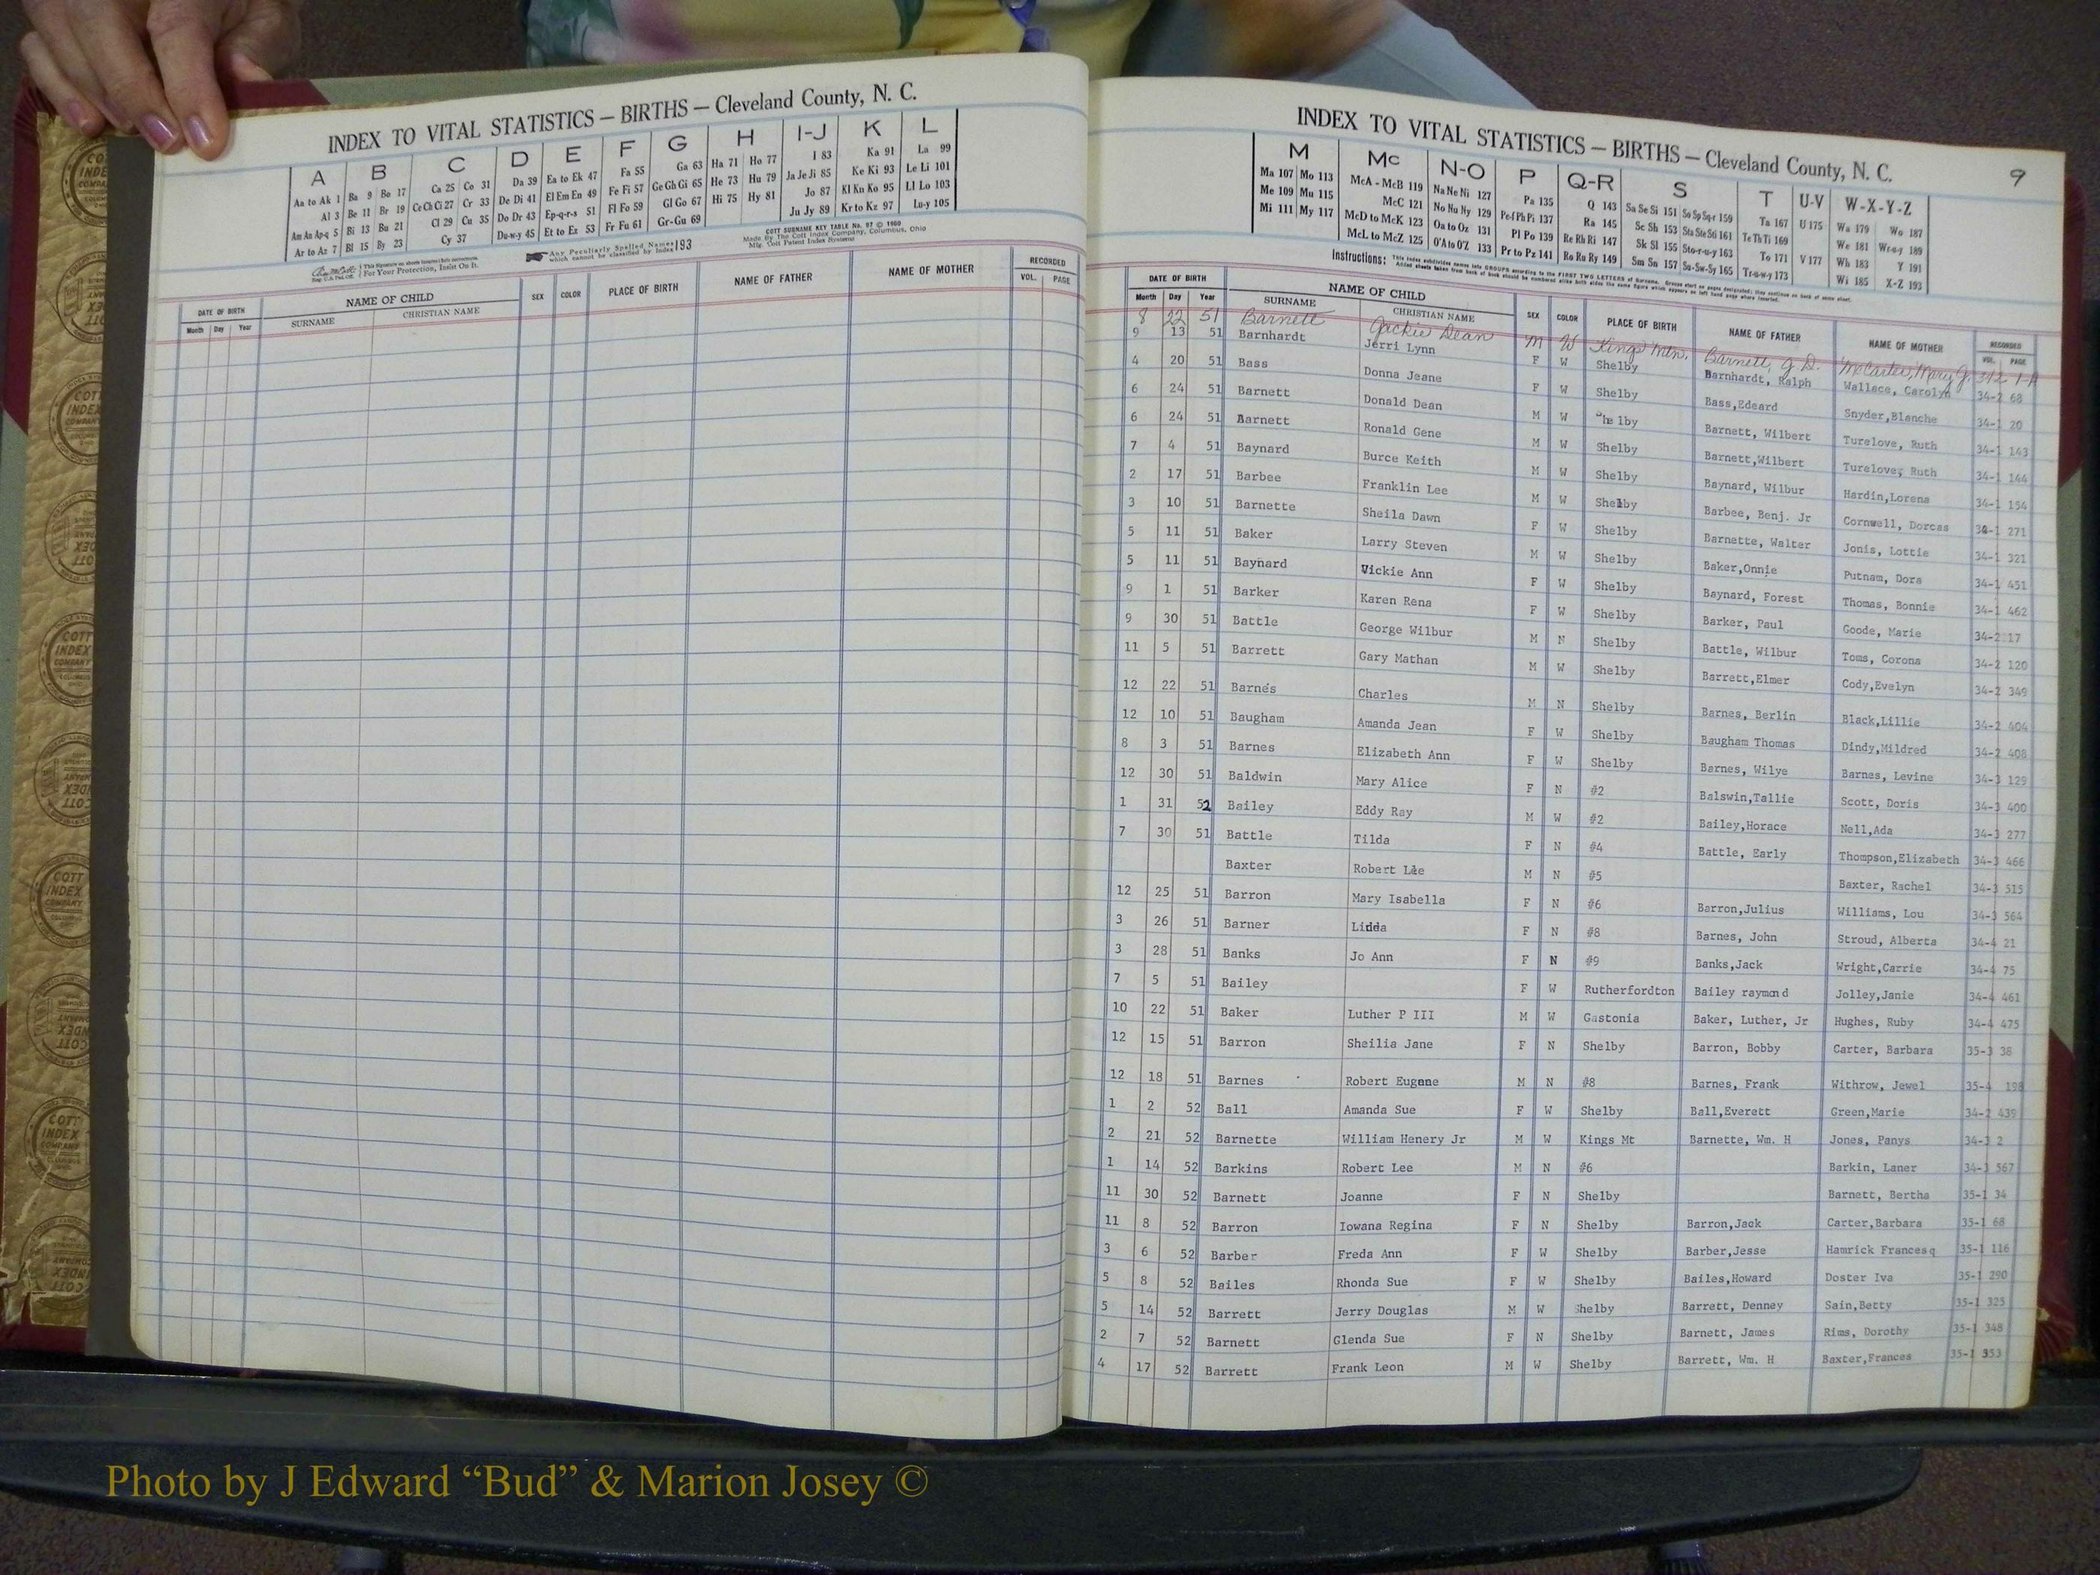 INDEX TO VITAL STATISTICS — BIRTHS — Cleveland County, N. C.
A B C D E F G H I-J K L
Aa to Ak 1 Ba 9 Bo 17 Ca 25 Co 31 Da 39 Ea to Ek 47 Fa 55 Ga 63 Ha 71 Ho 77 I 83 Ka 91 La 99
Al 3 Be 11 Br 19 Ce Ch Ci 27 Cr 33 De Di 41 El Em En 49 Fe Fi 57 Ge Gh Gi 65 He 73 Hu 79 Ja Je Ji 85 Ke Ki 93 Le Li 101
Am An Ap-q 5 Bi 13 Bu 21 Cl 29 Cu 35 Do Dr 43 Ep-q-r-s 51 Fl Fo 59 Gl Go 67 Hi 75 Hy 81 Jo 87 Kl Kn Ko 95 Ll Lo 103
Ar to Az 7 Bl 15 By 23 Cy 37 Du-w-y 45 Et to Ez 53 Fr Fu 61 Gr-Gu 69 Ju Jy 89 Kr to Kz 97 Lu-y 105
For Your Protection, Insist On It.
Any Peculiarly Spelled Names which cannot be classified by Index 193
COTT SURNAME KEY TABLE No. 97 © 1960
Made By The Cott Index Company, Columbus, Ohio
Mfg. Cott Patent Index Systems
DATE OF BIRTH NAME OF CHILD SEX COLOR PLACE OF BIRTH NAME OF FATHER NAME OF MOTHER RECORDED
Month Day Year SURNAME CHRISTIAN NAME VOL. PAGE
INDEX TO VITAL STATISTICS — BIRTHS — Cleveland County, N. C.
9
M Mc N-O P Q-R S T U-V W-X-Y-Z
Ma 107 Mo 113 McA - McB 119 Na Ne Ni 127 Pa 135 Q 143 Sa Se Si 151 So Sp Sq-r 159 Ta 167 U 175 Wa 179 Wo 187
Me 109 Mu 115 McC 121 No Nu Ny 129 Pe-f Ph Pi 137 Ra 145 Sc Sh 153 Sta Ste Sti 161 Te Th Ti 169 We 181 Wr-u-y 189
Mi 111 My 117 McD to McK 123 Oa to Oz 131 Pl Po 139 Re Rh Ri 147 Sk Sl 155 Sto-r-u-y 163 To 171 V 177 Wh 183 Y 191
McL to McZ 125 O'A to O'Z 133 Pr to Pz 141 Ro Ru Ry 149 Sm Sn 157 Su-Sw-Sy 165 Tr-u-w-y 173 Wi 185 X-Z 193
Instructions: This index subdivides names into GROUPS according to the FIRST TWO LETTERS of Surname.
DATE OF BIRTH NAME OF CHILD SEX COLOR PLACE OF BIRTH NAME OF FATHER NAME OF MOTHER RECORDED
Month Day Year SURNAME CHRISTIAN NAME VOL. PAGE
8 22 51 Barnett Jackie Dean M W Kings Mtn. Barnett, J. D. McCarter, Mary J. 312 1-A
9 13 51 Barnhardt Jerri Lynn F W Shelby Barnhardt, Ralph Wallace, Carolyn 34-2 68
4 20 51 Bass Donna Jeane F W Shelby Bass,Edeard Snyder,Blanche 34-1 20
6 24 51 Barnett Donald Dean M W Shelby Barnett, Wilbert Turelove, Ruth 34-1 143
6 24 51 Barnett Ronald Gene M W Shelby Barnett,Wilbert Turelove, Ruth 34-1 144
7 4 51 Baynard Burce Keith M W Shelby Baynard, Wilbur Hardin,Lorena 34-1 154
2 17 51 Barbee Franklin Lee M W Shelby Barbee, Benj. Jr Cornwell, Dorcas 34-1 271
3 10 51 Barnette Sheila Dawn F W Shelby Barnette, Walter Jonis, Lottie 34-1 321
5 11 51 Baker Larry Steven M W Shelby Baker,Onnie Putnam, Dora 34-1 451
5 11 51 Baynard Vickie Ann F W Shelby Baynard, Forest Thomas, Bonnie 34-1 462
9 1 51 Barker Karen Rena F W Shelby Barker, Paul Goode, Marie 34-2 17
9 30 51 Battle George Wilbur M N Shelby Battle, Wilbur Toms, Corona 34-2 120
11 5 51 Barrett Gary Mathan M W Shelby Barrett,Elmer Cody,Evelyn 34-2 349
12 22 51 Barnes Charles M N Shelby Barnes, Berlin Black,Lillie 34-2 404
12 10 51 Baugham Amanda Jean F W Shelby Baugham Thomas Dindy,Mildred 34-2 408
8 3 51 Barnes Elizabeth Ann F W Shelby Barnes, Wilye Barnes, Levine 34-3 129
12 30 51 Baldwin Mary Alice F N #2 Balswin,Tallie Scott, Doris 34-3 400
1 31 52 Bailey Eddy Ray M W #2 Bailey,Horace Nell,Ada 34-3 277
7 30 51 Battle Tilda F N #4 Battle, Early Thompson,Elizabeth 34-3 466
Baxter Robert Lee M N #5 Baxter, Rachel 34-3 515
12 25 51 Barron Mary Isabella F N #6 Barron,Julius Williams, Lou 34-3 564
3 26 51 Barner Lidda F N #8 Barnes, John Stroud, Alberta 34-4 21
3 28 51 Banks Jo Ann F N #9 Banks,Jack Wright,Carrie 34-4 75
7 5 51 Bailey F W Rutherfordton Bailey raymond Jolley,Janie 34-4 461
10 22 51 Baker Luther P III M W Gastonia Baker, Luther, Jr Hughes, Ruby 34-4 475
12 15 51 Barron Sheilia Jane F N Shelby Barron, Bobby Carter, Barbara 35-3 38
12 18 51 Barnes Robert Eugene M N #8 Barnes, Frank Withrow, Jewel 35-4 198
1 2 52 Ball Amanda Sue F W Shelby Ball,Everett Green,Marie 34-2 439
2 21 52 Barnette William Henery Jr M W Kings Mt Barnette, Wm. H Jones, Panys 34-3 2
1 14 52 Barkins Robert Lee M N #6 Barkin, Laner 34-3 567
11 30 52 Barnett Joanne F N Shelby Barnett, Bertha 35-1 34
11 8 52 Barron Iowana Regina F N Shelby Barron,Jack Carter,Barbara 35-1 68
3 6 52 Barber Freda Ann F W Shelby Barber,Jesse Hamrick Frances 35-1 116
5 8 52 Bailes Rhonda Sue F W Shelby Bailes,Howard Doster Iva 35-1 290
5 14 52 Barrett Jerry Douglas M W Shelby Barrett, Denney Sain,Betty 35-1 325
2 7 52 Barnett Glenda Sue F N Shelby Barnett, James Rims, Dorothy 35-1 348
4 17 52 Barrett Frank Leon M W Shelby Barrett, Wm. H Baxter,Frances 35-1 353
Photo by J Edward “Bud” & Marion Josey ©